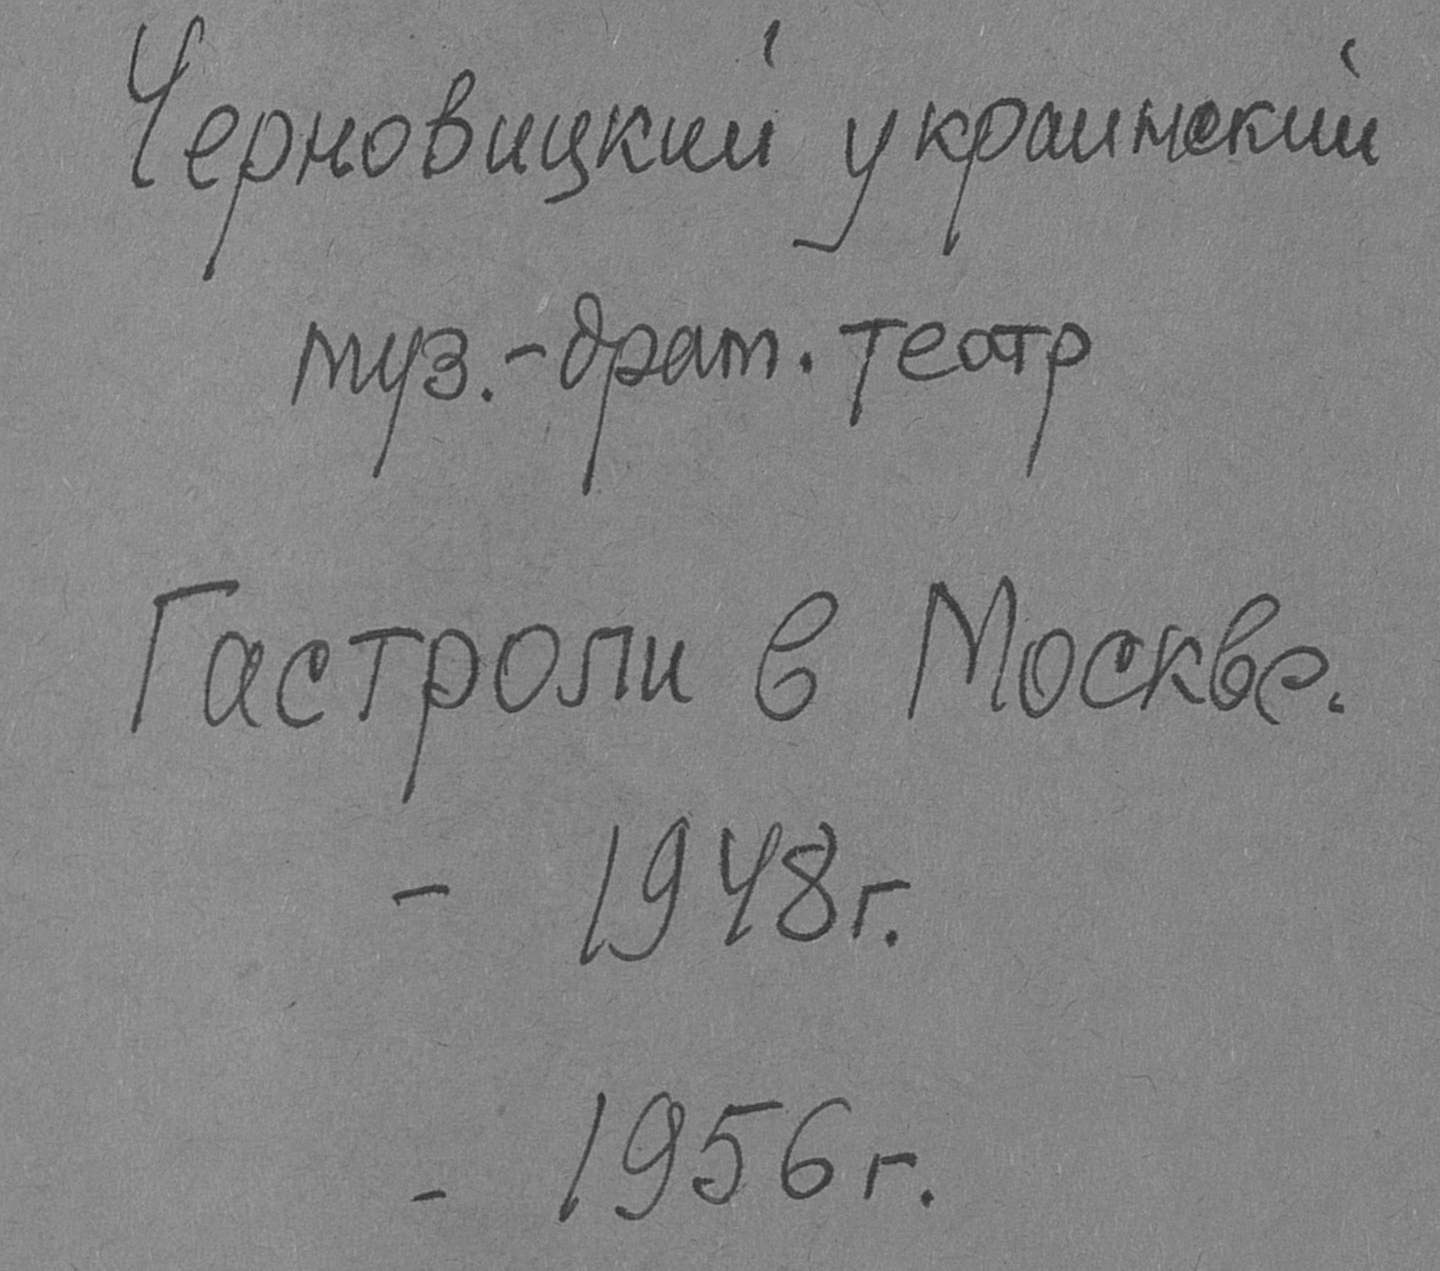 Черновицкий украинский
муз.-драм. театр
Гастроли в Москве.
- 1948г.
- 1956г.